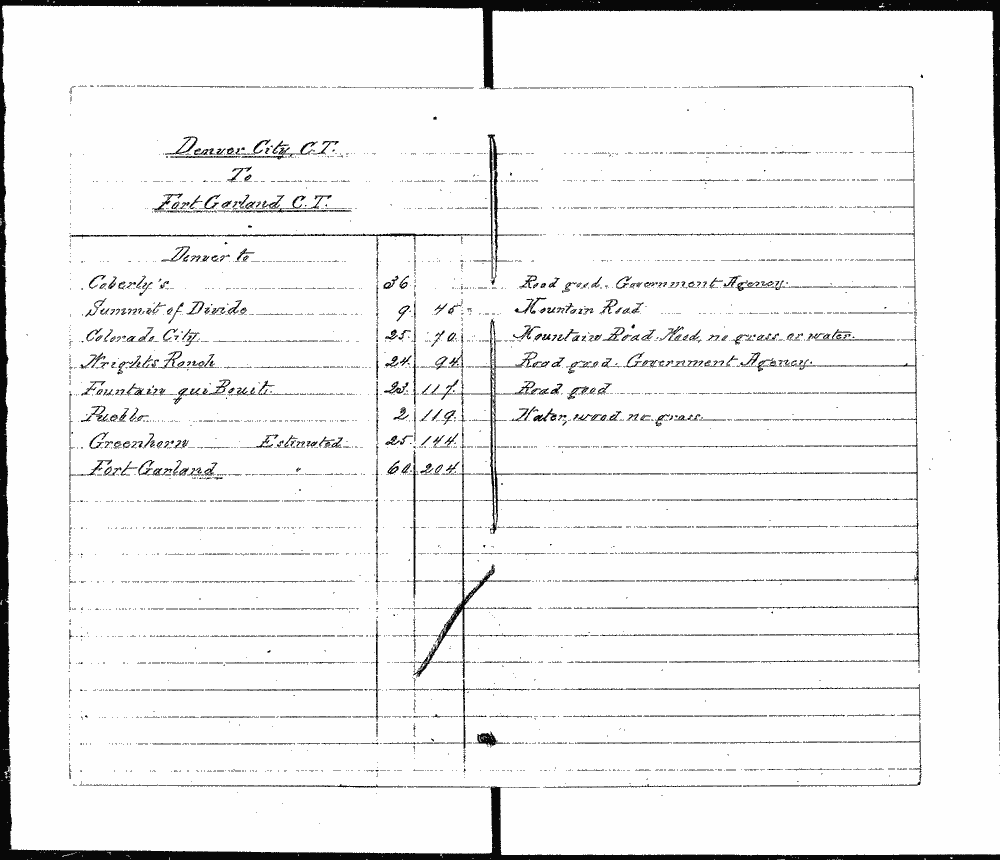 Denver City, C.T.
To
Fort Garland, C.T.
Denver to
Coberly's 36 Road good. Government Agency.
Summit of Divide 9. 45 Mountain Road
Colorado City. 25. 70. Mountain Road. Wood, no grass or water.
Wrights Ranch 24. 94 Road good. Government Agency.
Fountain qui Bouit. 23. 117. Road good
Pueblo 2 119. Water, wood no grass.
Greenhorn Estimated 25. 144.
Fort Garland " 60. 204.